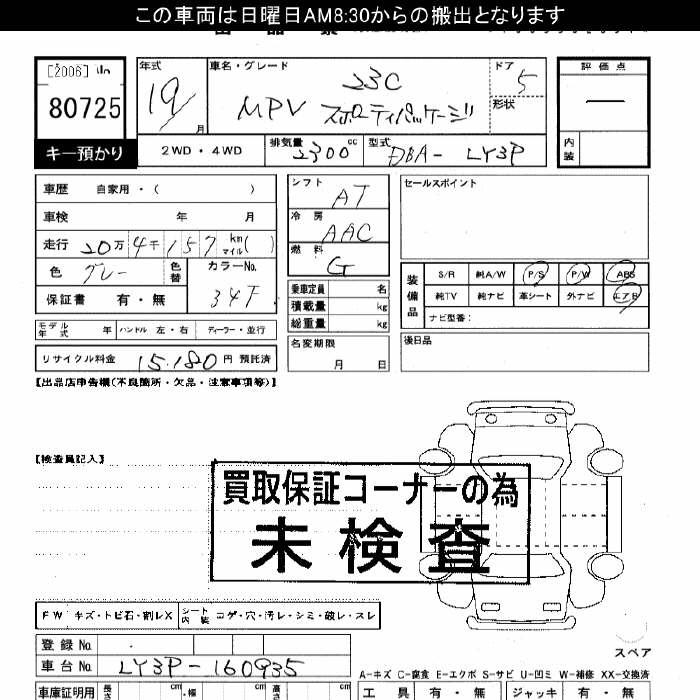 この車両は日曜日AM8:30からの搬出となります
[2006]
80725
キー預かり
年式 19 月
車名・グレード 23C
MPV スポーティパッケージ
ドア 5
形状
評価点
―
内装
2WD・4WD
排気量 2300 cc
型式 DBA- LY3P
車歴 自家用・( )
車検 年 月
走行 20万4千157 km マイル( )
色 グレー
色替
カラーNo. 34F
保証書 有・無
シフト AT
冷房 AAC
燃料 G
乗車定員 名
積載量 kg
総重量 kg
名変期限 月 日
セールスポイント
装備品
S/R 純A/W P/S P/W ABS
純TV 純ナビ 革シート 外ナビ エアB
ナビ型番:
後日品
モデル年式 年 ハンドル 左・右 ディーラー・並行
リサイクル料金 15.180 円 預託済
【出品店申告欄(不良箇所・欠品・注意事項等)】
【検査員記入】
買取保証コーナーの為
未検査
FW キズ・トビ石・割レX シート内装 コゲ・穴・汚レ・シミ・破レ・スレ
スペア
登録No.
車台No. LY3P-160935
A-キズ C-腐食 E-エクボ S-サビ U-凹ミ W-補修 XX-交換済
車庫証明用 長さ cm 幅 cm 高さ cm
工具 有・無 ジャッキ 有・無